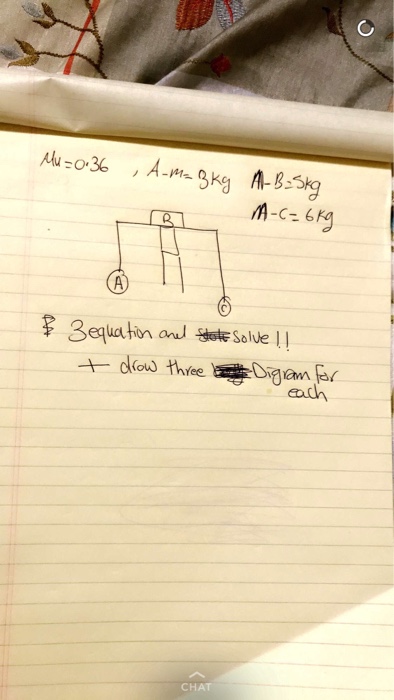 Mu=0.36 , A-m= 3kg M-B=5kg
M-C= 6kg
B
A
C
3 equation and Solve !!
+ draw three Digram for
each
CHAT